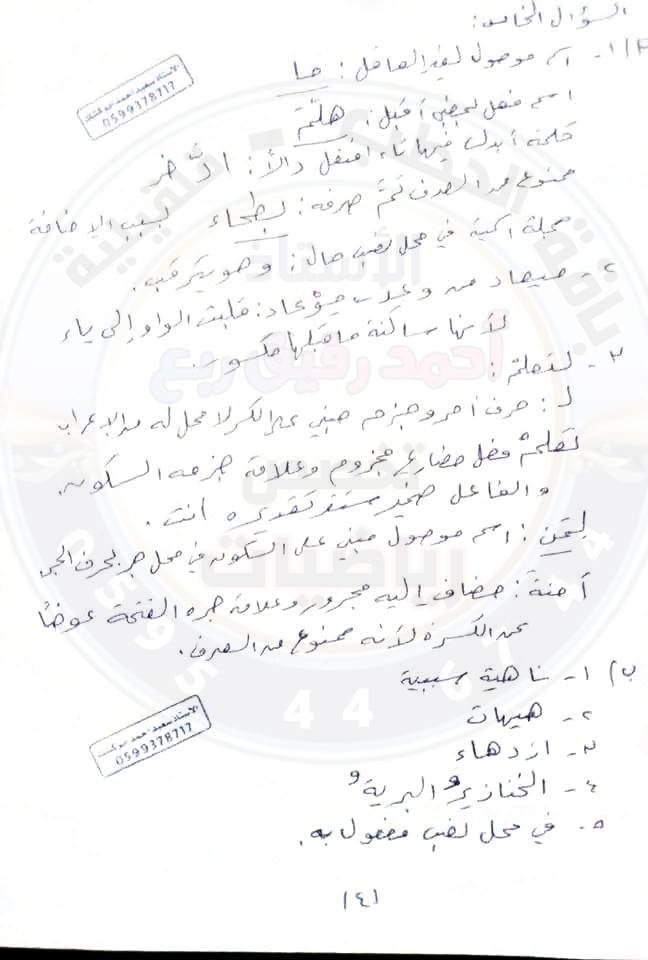 السؤال الخامس:
أ/ ١- اسم موصول لغير العاقل: ما
اسم فعل بمعنى أقبل: هلُمّ
كلمة أبدل فيها تاء افتعل دالاً: ادّخر
ممنوع من الصرف تمّ صرفه: بطحاء لسبب الإضافة
جملة اسمية في محل نصب حال: وهو يترقب.
٢- ميعاد من وعد موعاد: قلبت الواو إلى ياء
لأنها ساكنة ما قبلها مكسور.
٣- لتعلمْ:
لـ: حرف أمر وجزم مبني على الكسر لا محل له من الإعراب
تعلمْ فعل مضارع مجزوم وعلامة جزمه السكون.
والفاعل ضمير مستتر تقديره أنت.
لمن: اسم موصول مبني على السكون في محل جر بحرف الجر
آمنةَ: مضاف إليه مجرور وعلامة جره الفتحة عوضاً
عن الكسرة لأنه ممنوع من الصرف.
ب/ ١- ناهية سببية
٢- هيهات
٣- ازدهاء
٤- الخنازيرُ والبريةُ
٥- في محل نصب مفعول به.
(٤)
الأستاذ سعيد احمد
0599378717
الأستاذ سعيد احمد
0599378717
باقة الحطيم - قلقيلية
الأستاذ
أحمد رفيق ربع
تخصص
رياضيات